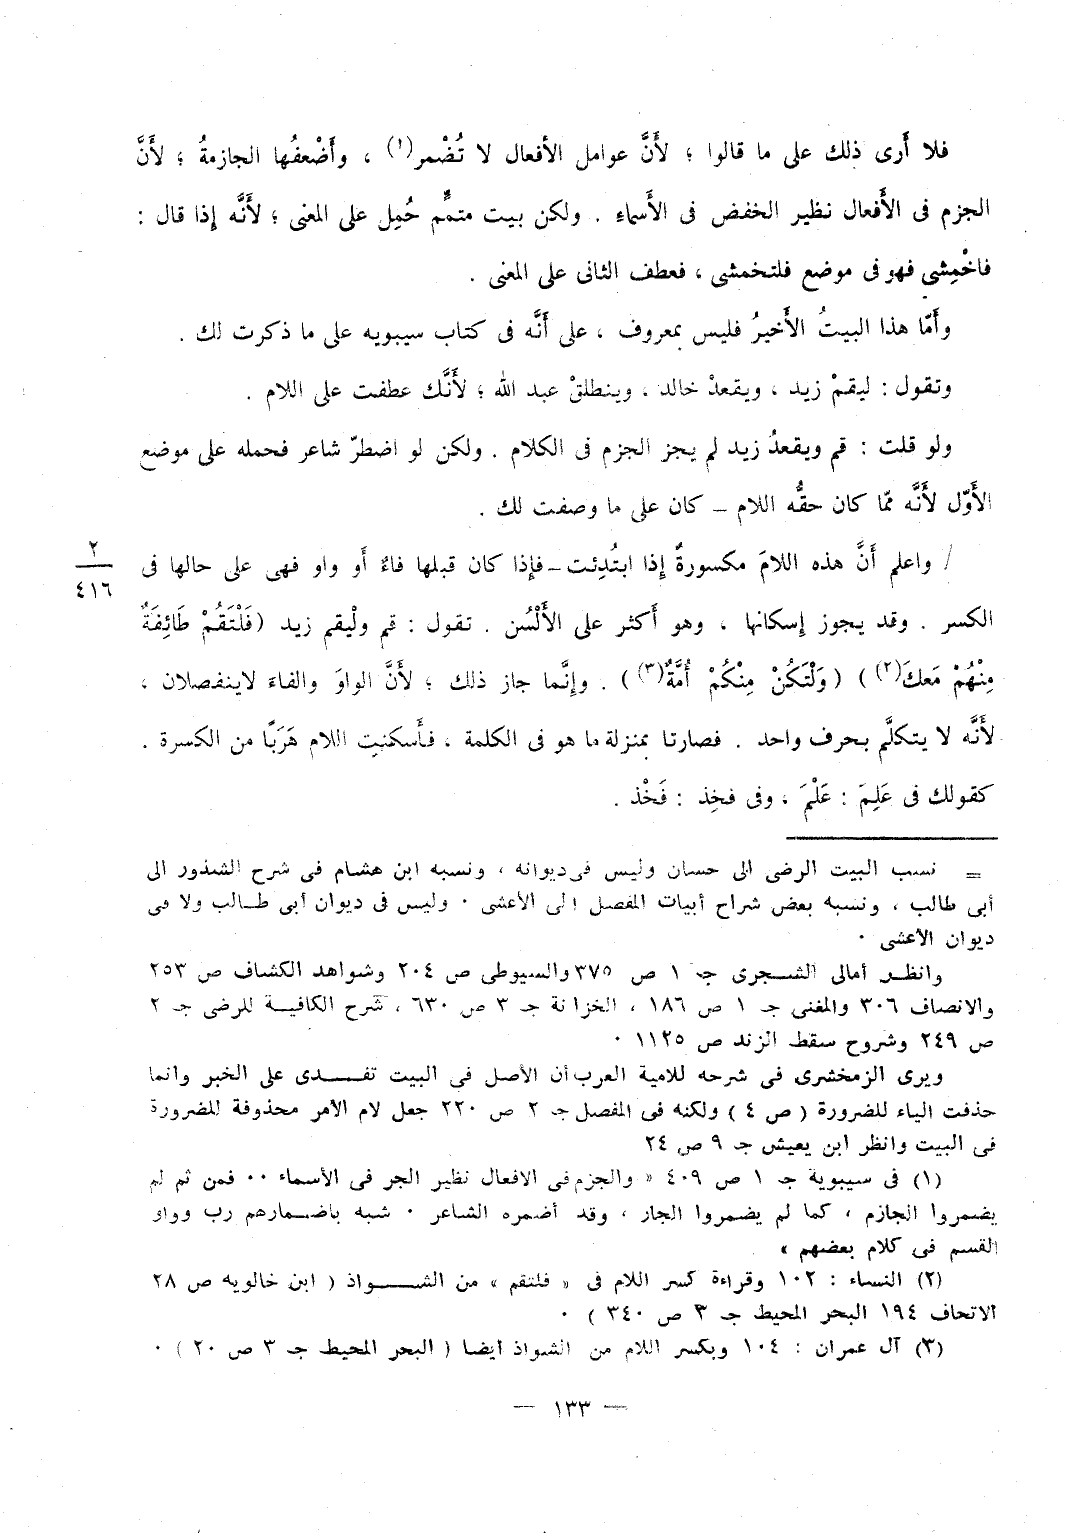 فلا أَرى ذلك على ما قالوا ؛ لأَنَّ عوامل الأفعال لا تُضْمر(١) ، وأَضْعفُها الجازمةُ ؛ لأَنَّ
الجزم فى الأَفعال نظير الخفض فى الأَسماء . ولكن بيت متمِّم حُمِل على المعنى ؛ لأَنَّه إِذا قال :
فاخْمِشِي فهو فى موضع فلتخمشى ، فعطف الثانى على المعنى .
وأَمّا هذا البيتُ الأَخيرُ فليس بمعروف ، على أَنَّه فى كتاب سيبويه على ما ذكرت لك .
وتقول : ليقمْ زيد ، ويقعدْ خالد ، وينطلقْ عبد الله ؛ لأَنَّك عطفت على اللام .
ولو قلت : قم ويقعدْ زيد لم يجز الجزم فى الكلام . ولكن لو اضطرّ شاعر فحمله على موضع
الأَوّل لأَنَّه ممّا كان حقُّه اللام – كان على ما وصفت لك .
/ واعلم أَنَّ هذه اللامَ مكسورةٌ إِذا ابتُدِئت – فإِذا كان قبلها فاءٌ أَو واو فهى على حالها فى
٢
٤١٦
الكسر . وقد يجوز إِسكانها ، وهو أَكثر على الأَلْسُن . تقول : قم ولْيقم زيد (فَلْتَقُمْ طَائِفَةٌ
مِنْهُمْ مَعكَ(٢) ) ( وَلْتَكُنْ مِنْكُمْ أُمَّةٌ(٣) ) . وإِنَّما جاز ذلك ؛ لأَنَّ الواوَ والفاءَ لاينفصلان ،
لأَنَّه لا يتكلَّم بحرف واحد . فصارتا بمنزلة ما هو فى الكلمة ، فأَسكنت اللام هَرَبًا من الكسرة .
كقولك فى عَلِمَ : عَلْمَ ، وفى فخِذ : فَخْذ .
= نسب البيت الرضى الى حسان وليس فى ديوانه ، ونسبه ابن هشام فى شرح الشذور الى
أبى طالب ، ونسبه بعض شراح أبيات المفصل الى الأعشى . وليس فى ديوان أبى طالب ولا فى
ديوان الأعشى .
وانظر أمالى الشجرى جـ ١ ص ٣٧٥ والسيوطى ص ٢٠٤ وشواهد الكشاف ص ٢٥٣
والانصاف ٣٠٦ والمغنى جـ ١ ص ١٨٦ ، الخزانة جـ ٣ ص ٦٣٠ ، شرح الكافية للرضى جـ ٢
ص ٢٤٩ وشروح سقط الزند ص ١١٢٥ .
ويرى الزمخشرى فى شرحه للامية العرب أن الأصل فى البيت تفدى على الخبر وانما
حذفت الياء للضرورة ( ص ٤ ) ولكنه فى المفصل جـ ٢ ص ٢٢٠ جعل لام الأمر محذوفة للضرورة
فى البيت وانظر ابن يعيش جـ ٩ ص ٢٤
(١) فى سيبوية جـ ١ ص ٤٠٩ « والجزم فى الافعال نظير الجر فى الأسماء .. فمن ثم لم
يضمروا الجازم ، كما لم يضمروا الجار ، وقد أضمره الشاعر . شبه باضمارهم رب وواو
القسم فى كلام بعضهم »
(٢) النساء : ١٠٢ وقراءة كسر اللام فى « فلتقم » من الشواذ ( ابن خالويه ص ٢٨
الاتحاف ١٩٤ البحر المحيط جـ ٣ ص ٣٤٠ ) .
(٣) آل عمران : ١٠٤ وبكسر اللام من الشواذ أيضا ( البحر المحيط جـ ٣ ص ٢٠ ) .
— ١٣٣ —